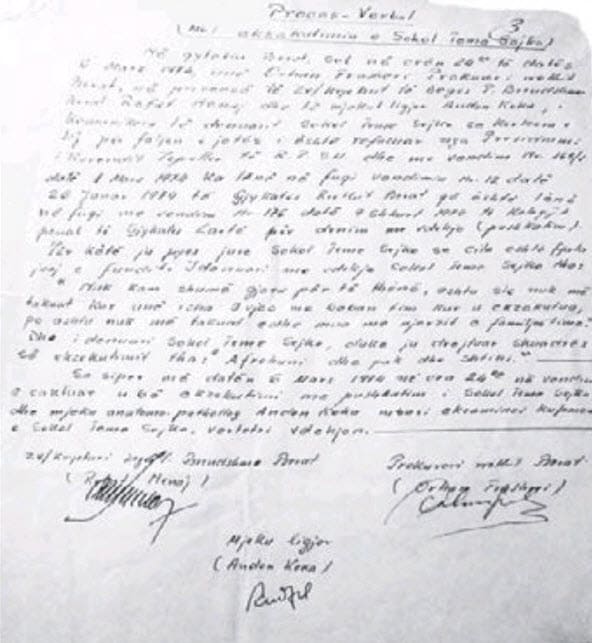 Proces-Verbal
3
(Mbi ekzekutimin e Sokol Jeme Sejko)
Në qytetin Berat, sot në orën 24°° të datës
6 Mars 1974, unë Orhan Frashëri Prokurori rrethit
Berat, në prezencë të zv/kryetarit të Degës P. Brendshme
Berat Rafet Menaj dhe të mjekut ligjor Andon Koka, i
të denuarit Sokol Jeme Sejko se kerkesa e
tij për faljen e jetës i është refuzuar nga Presidiumi
i Kuvendit Popullor të R.P.SH dhe me vendim Nr.
datë Mars 1974 ka lënë në fuqi vendimin Nr. 12 datë
26 Janar 1974 të Gjykatës Rrethit Berat që është lënë
në fuqi me vendim Nr. 176 datë Shkurt 1974 të Kolegjit
penal të Gjykatës Lartë për denim me vdekje (pushkatim).
Për këtë ju pyes juve Sokol Jeme Sejko se cila eshtë fjala
juaj e fundit. I denuari me vdekje Sokol Jeme Sejko tha:
" Nuk kam shumë gjera për të thënë, ashtu siç nuk më
takuat kur unë isha 3 vjeç me baban tim kur u ekzekutua,
po ashtu nuk më takuat edhe mua me njerzit e familjes time."
Dhe i denuari Sokol Jeme Sejko, duke ju drejtuar skuadrës
së ekzekutimit tha: " Afrohuni dhe pak dhe shtini."
Sa siper më datën 6 Mars 1974 në ora 24°° në vendin
e caktuar u bë ekzekutimi me pushkatim i Sokol Jeme Sejko
dhe mjeku anatomo-patholog Andon Koka mbasi ekzaminoi kufomen
e Sokol Jeme Sejko, vertetoi vdekjen.
zv/Kryetari Degës P. Brendshme Berat
Prokurori rrethit Berat
( Menaj)
(Orhan Frashëri)
Mjeku ligjor
(Andon Koka)